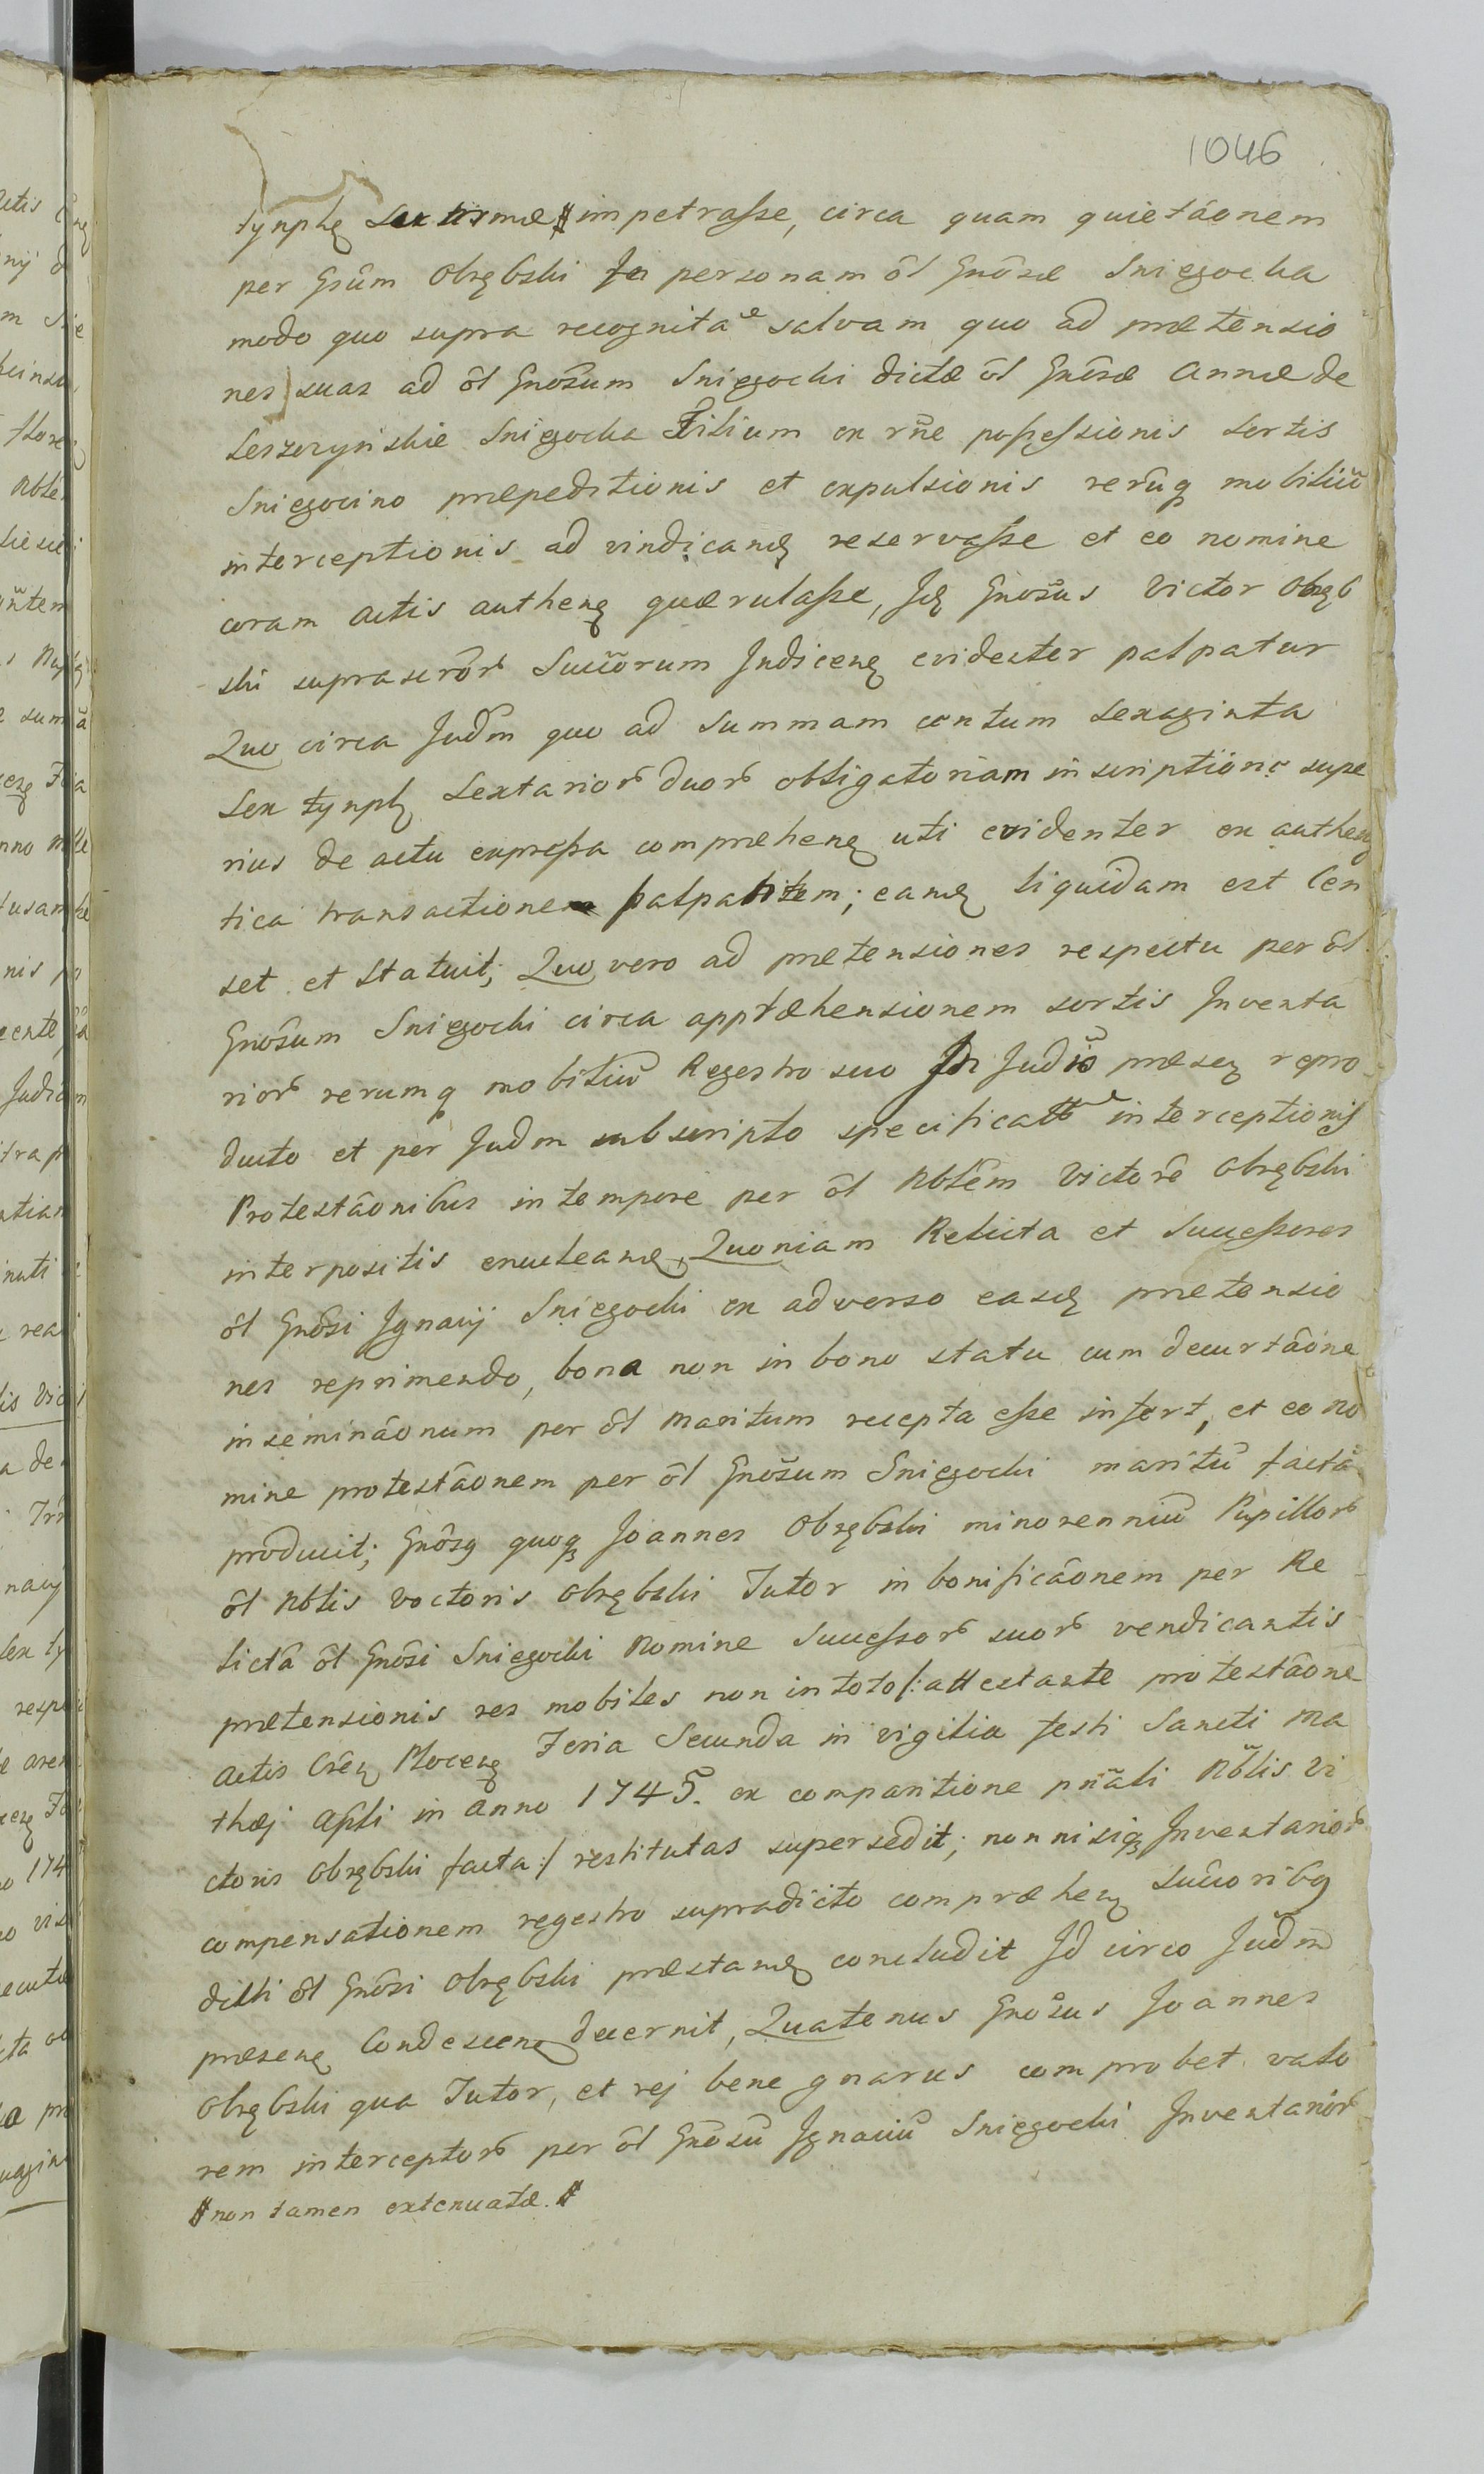 1046
tynph sex firmæ # impetraſse, circa quam quietâonem
per Gsûm Obrębski In personam ôl Gnôsæ Sniegocka
modo quo supra recognitã salvam quo ad prætensio
nes suas ad ôl Gnosûm Sniegocki dictæ ôl Gnôsæ Annæ de
Leszczynskie Sniegocka Filium ex rñe poſseſsionis Sortis
Sniegocino præpeditionis et expulsionis rerûq mobiliũ
interceptionis ad vindicanđ reservaſse et eo nomine
coram actis authen quærulaſse, Id Gnosûs Victor Obręb
ski suprascror Succorum Judicen evidenter palpatur
Quo circa Judm quo ad Summam centum Sexaginta
Sex tynph Sextarior duor obligatoriam inscriptione supe
rius de actu expreſsa compræhen uti evidenter ex authen
tica transactione palpabilem; eand liquidam est Cen
set et Statuit; Quo vero ad prætensiones respectu per ôl
Gnôsum Sniegocki circa appræhensionem sortis Inventa
rior rerumq mobiliũ Regestro suo In Judio præsen repro
ducto et per Judm subscripto specificat interceptionis
Protestâonibus in tempore per ôl Nblêm Victorê Obrębski
interpositis enucleand, Quoniam Relicta et Succeſsores
ôl Gnôsi Ignacij Sniegocki ex adverso easd prætensio
nes reprimendo, bona non in bono statu cum decurtâone
inseminâonum per ôl Maritum recepta eſse infert, et eo No
mine protestâonem per ôl Gnosũm Sniegocki maritũ factã
producit; Gnôsq quoq Joannes Obrębski minorenniũ Pupillor
ôl Nblis Voctoris Obrębski Tutor in bonificâonem per Re
lictâ ôl Gnôsi Sniegocki Nomine Succeſsor suor vendicantis
prætensionis res mobiles non in toto /: attestante protestâone
Actis Cren Plocen Feria Secunda in vigilia festi Sancti Ma
thæj Apli in Anno 1745. ex comparitione pnãli Nblis Vi
ctoris Obrębski facta :/ restitutas supersedit; non nisiq Inventarior
compensationem regestro supradicto compræhen Succoribq
dicti ôl Gnôsi Obrębski præstand concludit Id circo Judm
præsen Condescen decernit, Quatenus Gnosûs Joannes
Obrębski qua Tutor, et rej bene gnarus comprobet valo
rem interceptor per ôl Gnôsũ Ignaciũ Sniegocki Inventarior
# non tamen extenuatæ. #